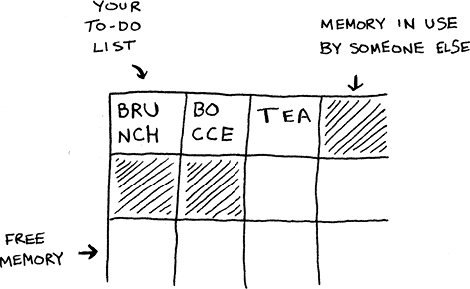 YOUR
TO-DO
LIST
MEMORY IN USE
BY SOMEONE ELSE
BRU
NCH
BO
CCE
TEA
FREE
MEMORY